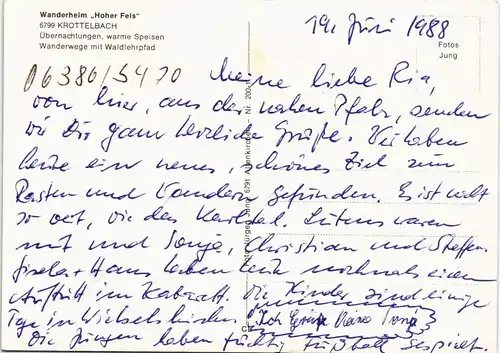 Wanderheim „Hoher Fels"
6799 KROTTELBACH
Übernachtungen, warme Speisen
Wanderwege mit Waldlehrpfad
19. Juni 1988
Fotos
Jung
06386/5470
Meine liebe Ria,
von hier, aus der nahen Pfalz, senden
wir Dir ganz herzliche Grüße. Wir haben
heute ein neues, schönes Ziel zum
Rasten und Wandern gefunden. Es ist nicht
so weit, wie das Karlstal. Lutens waren
mit und Sonja, Christian und Steffen.
Gisela + Hans haben heute nochmals einen
Auftritt im Kabarett. Die Kinder sind einige
Tage in
Ich Grüße Deine Sonja
Die Jungen haben tüchtig Fußball gespielt.
6791 Altenkirchen
Nr. 200